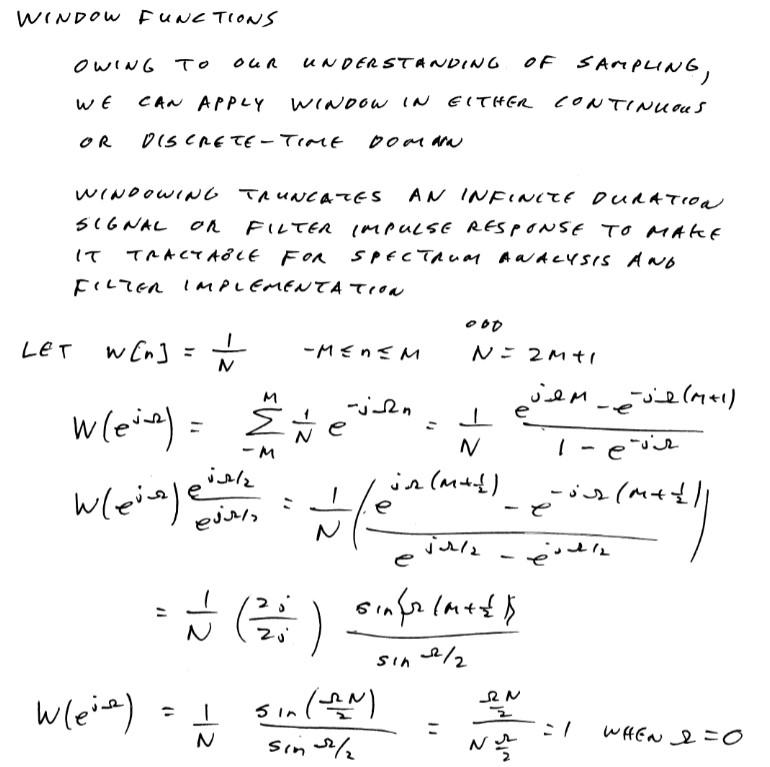 WINDOW FUNCTIONS
OWING TO OUR UNDERSTANDING OF SAMPLING,
WE CAN APPLY WINDOW IN EITHER CONTINUOUS
OR DISCRETE-TIME DOMAIN
WINDOWING TRUNCATES AN INFINITE DURATION
SIGNAL OR FILTER IMPULSE RESPONSE TO MAKE
IT TRACTABLE FOR SPECTRUM ANALYSIS AND
FILTER IMPLEMENTATION
LET w[n] = 1/N   -M ≤ n ≤ M   ODD N = 2M+1
W(e^{jΩ}) = Σ_{-M}^{M} 1/N e^{-jΩn} = 1/N (e^{jΩM} - e^{-jΩ(M+1)}) / (1 - e^{-jΩ})
W(e^{jΩ}) e^{jΩ/2} / e^{jΩ/2} = 1/N ((e^{jΩ(M+½)} - e^{-jΩ(M+½)}) / (e^{jΩ/2} - e^{jΩ/2}))
= 1/N (2j/2j) sin{Ω(M+½)} / sin Ω/2
W(e^{jΩ}) = 1/N sin(ΩN/2) / sin Ω/2 = (ΩN/2) / (N Ω/2) = 1 WHEN Ω = 0